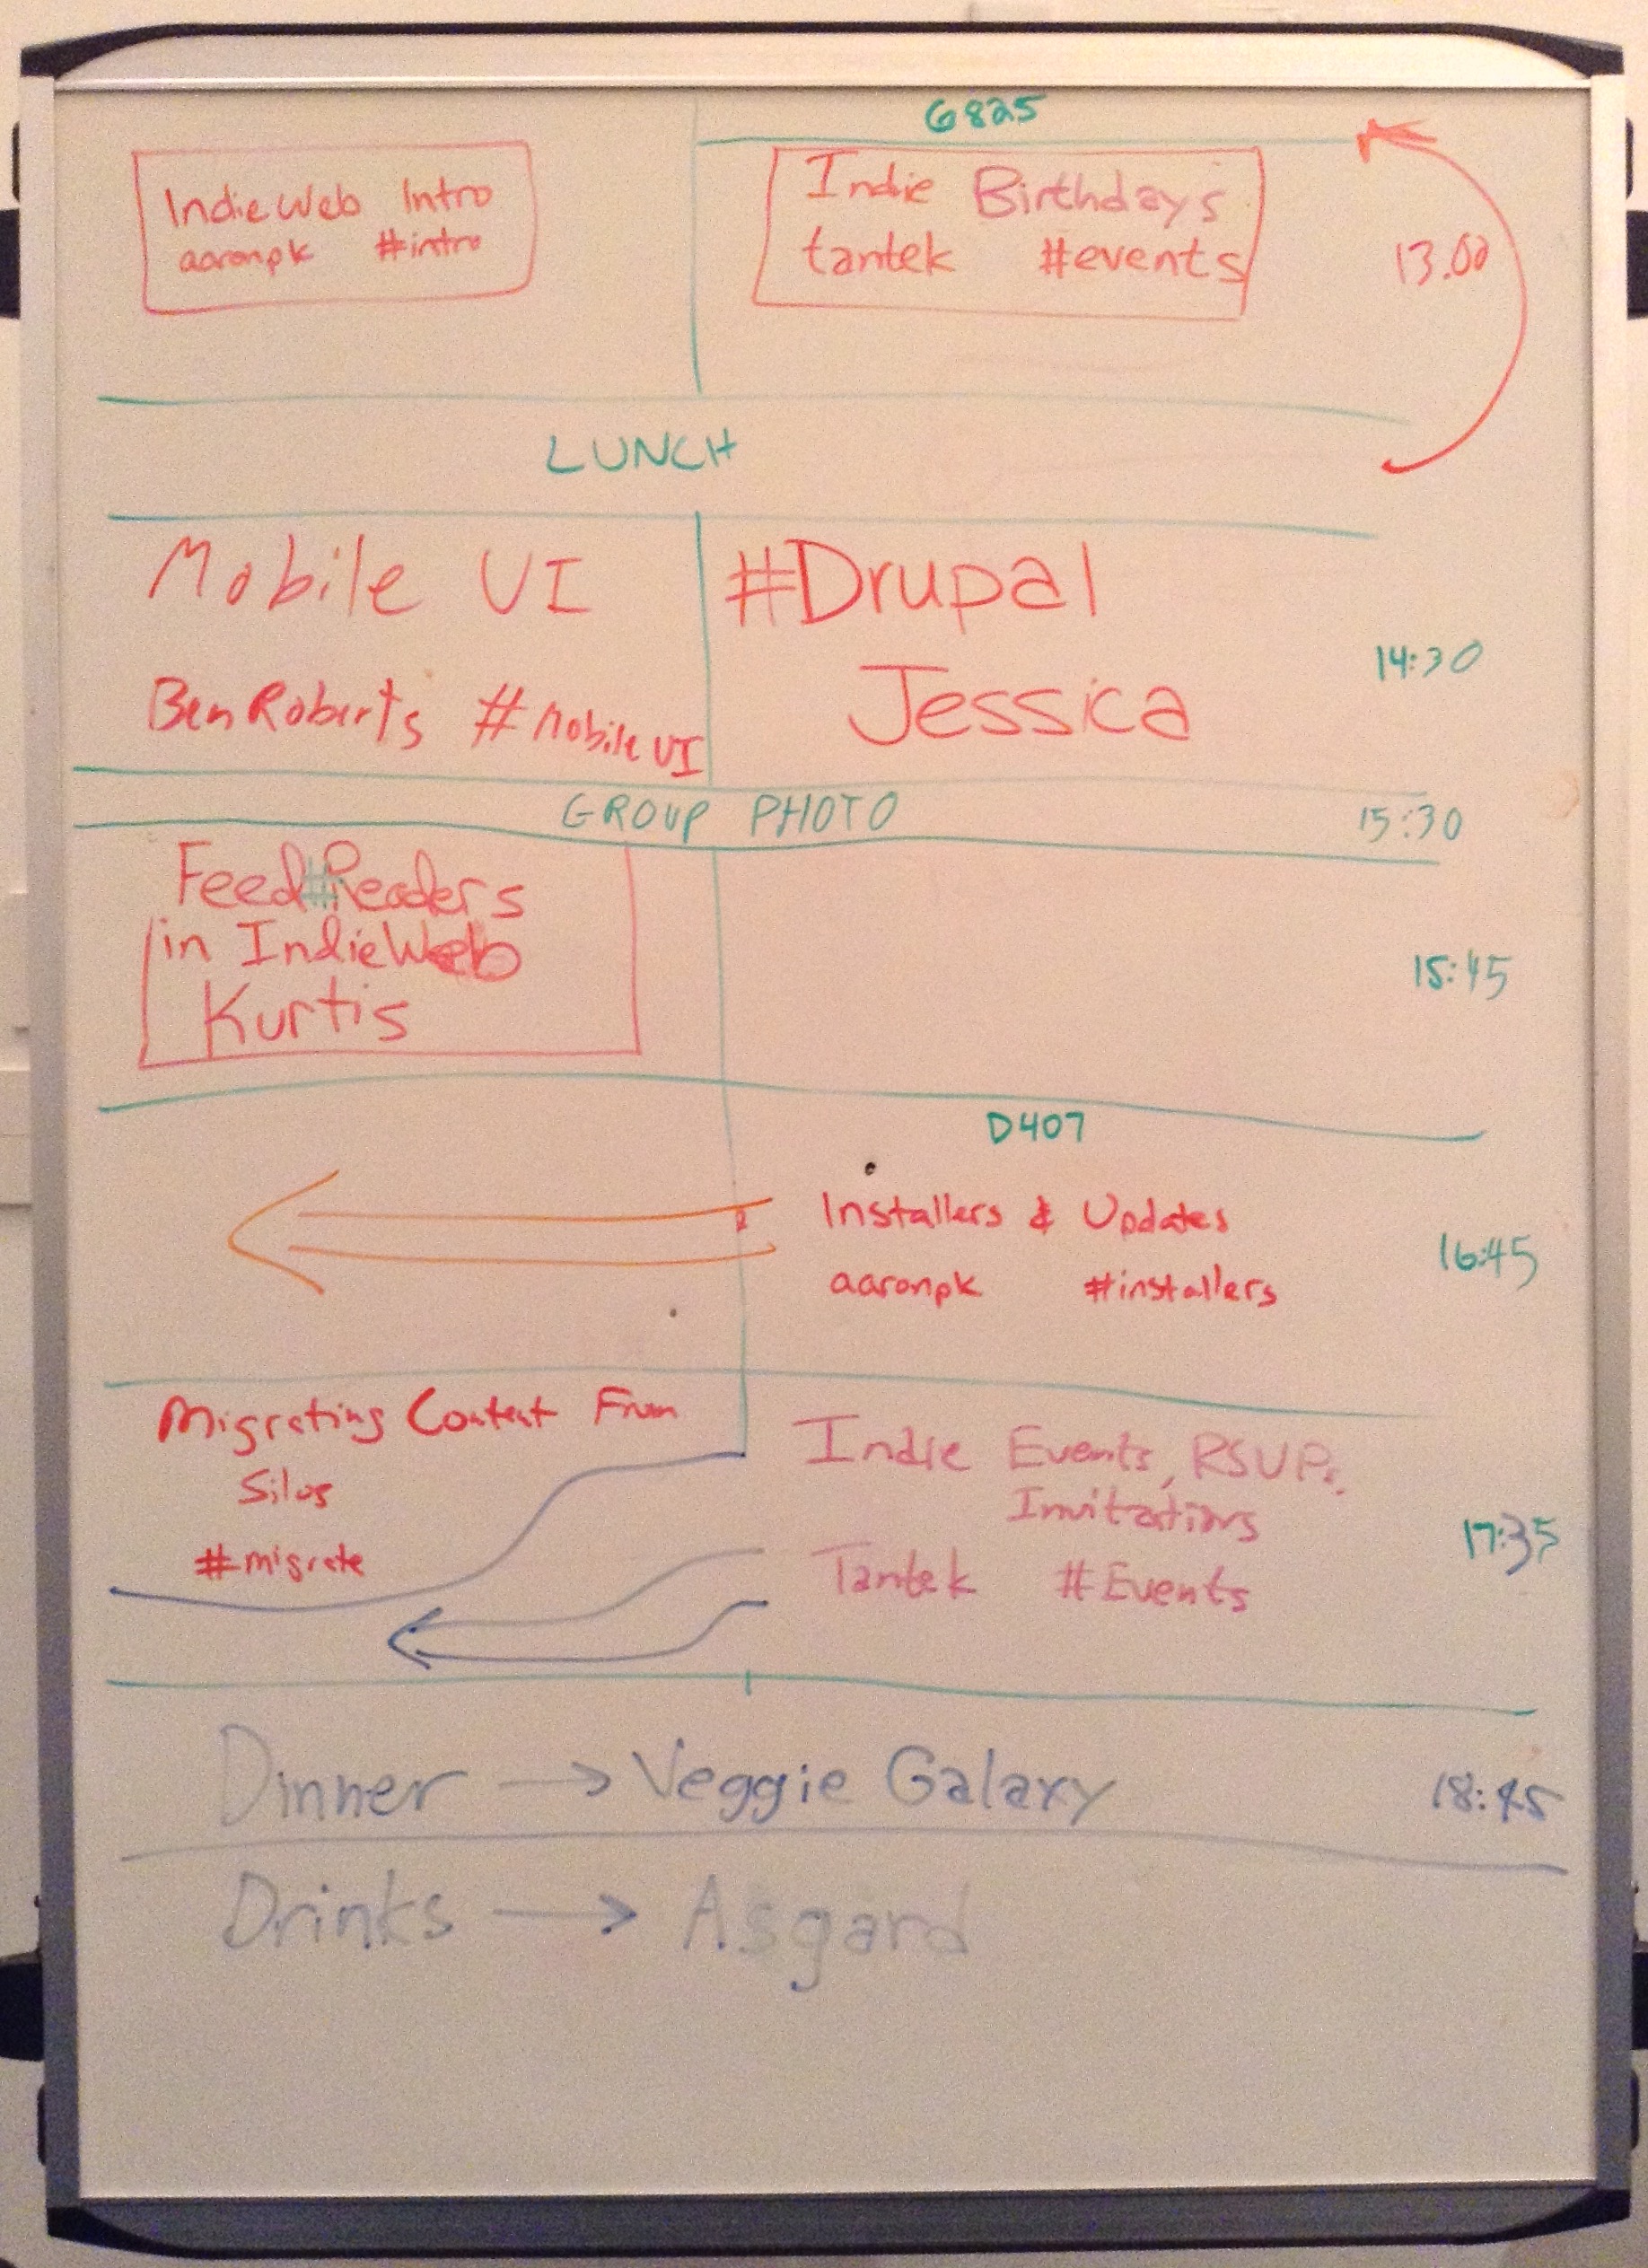 G825
IndieWeb Intro
aaronpk #intro
Indie Birthdays
tantek #events
13.00
LUNCH
Mobile UI
Ben Roberts #mobile UI
#Drupal
Jessica
14:30
GROUP PHOTO 15:30
Feed#Readers
in IndieWeb
Kurtis
15:45
D407
Installers & Updates
aaronpk #installers
16:45
Migrating Content From
Silos
#migrate
Indie Events, RSVPs
Invitations
Tantek #Events
17:35
Dinner → Veggie Galaxy 18:45
Drinks → Asgard